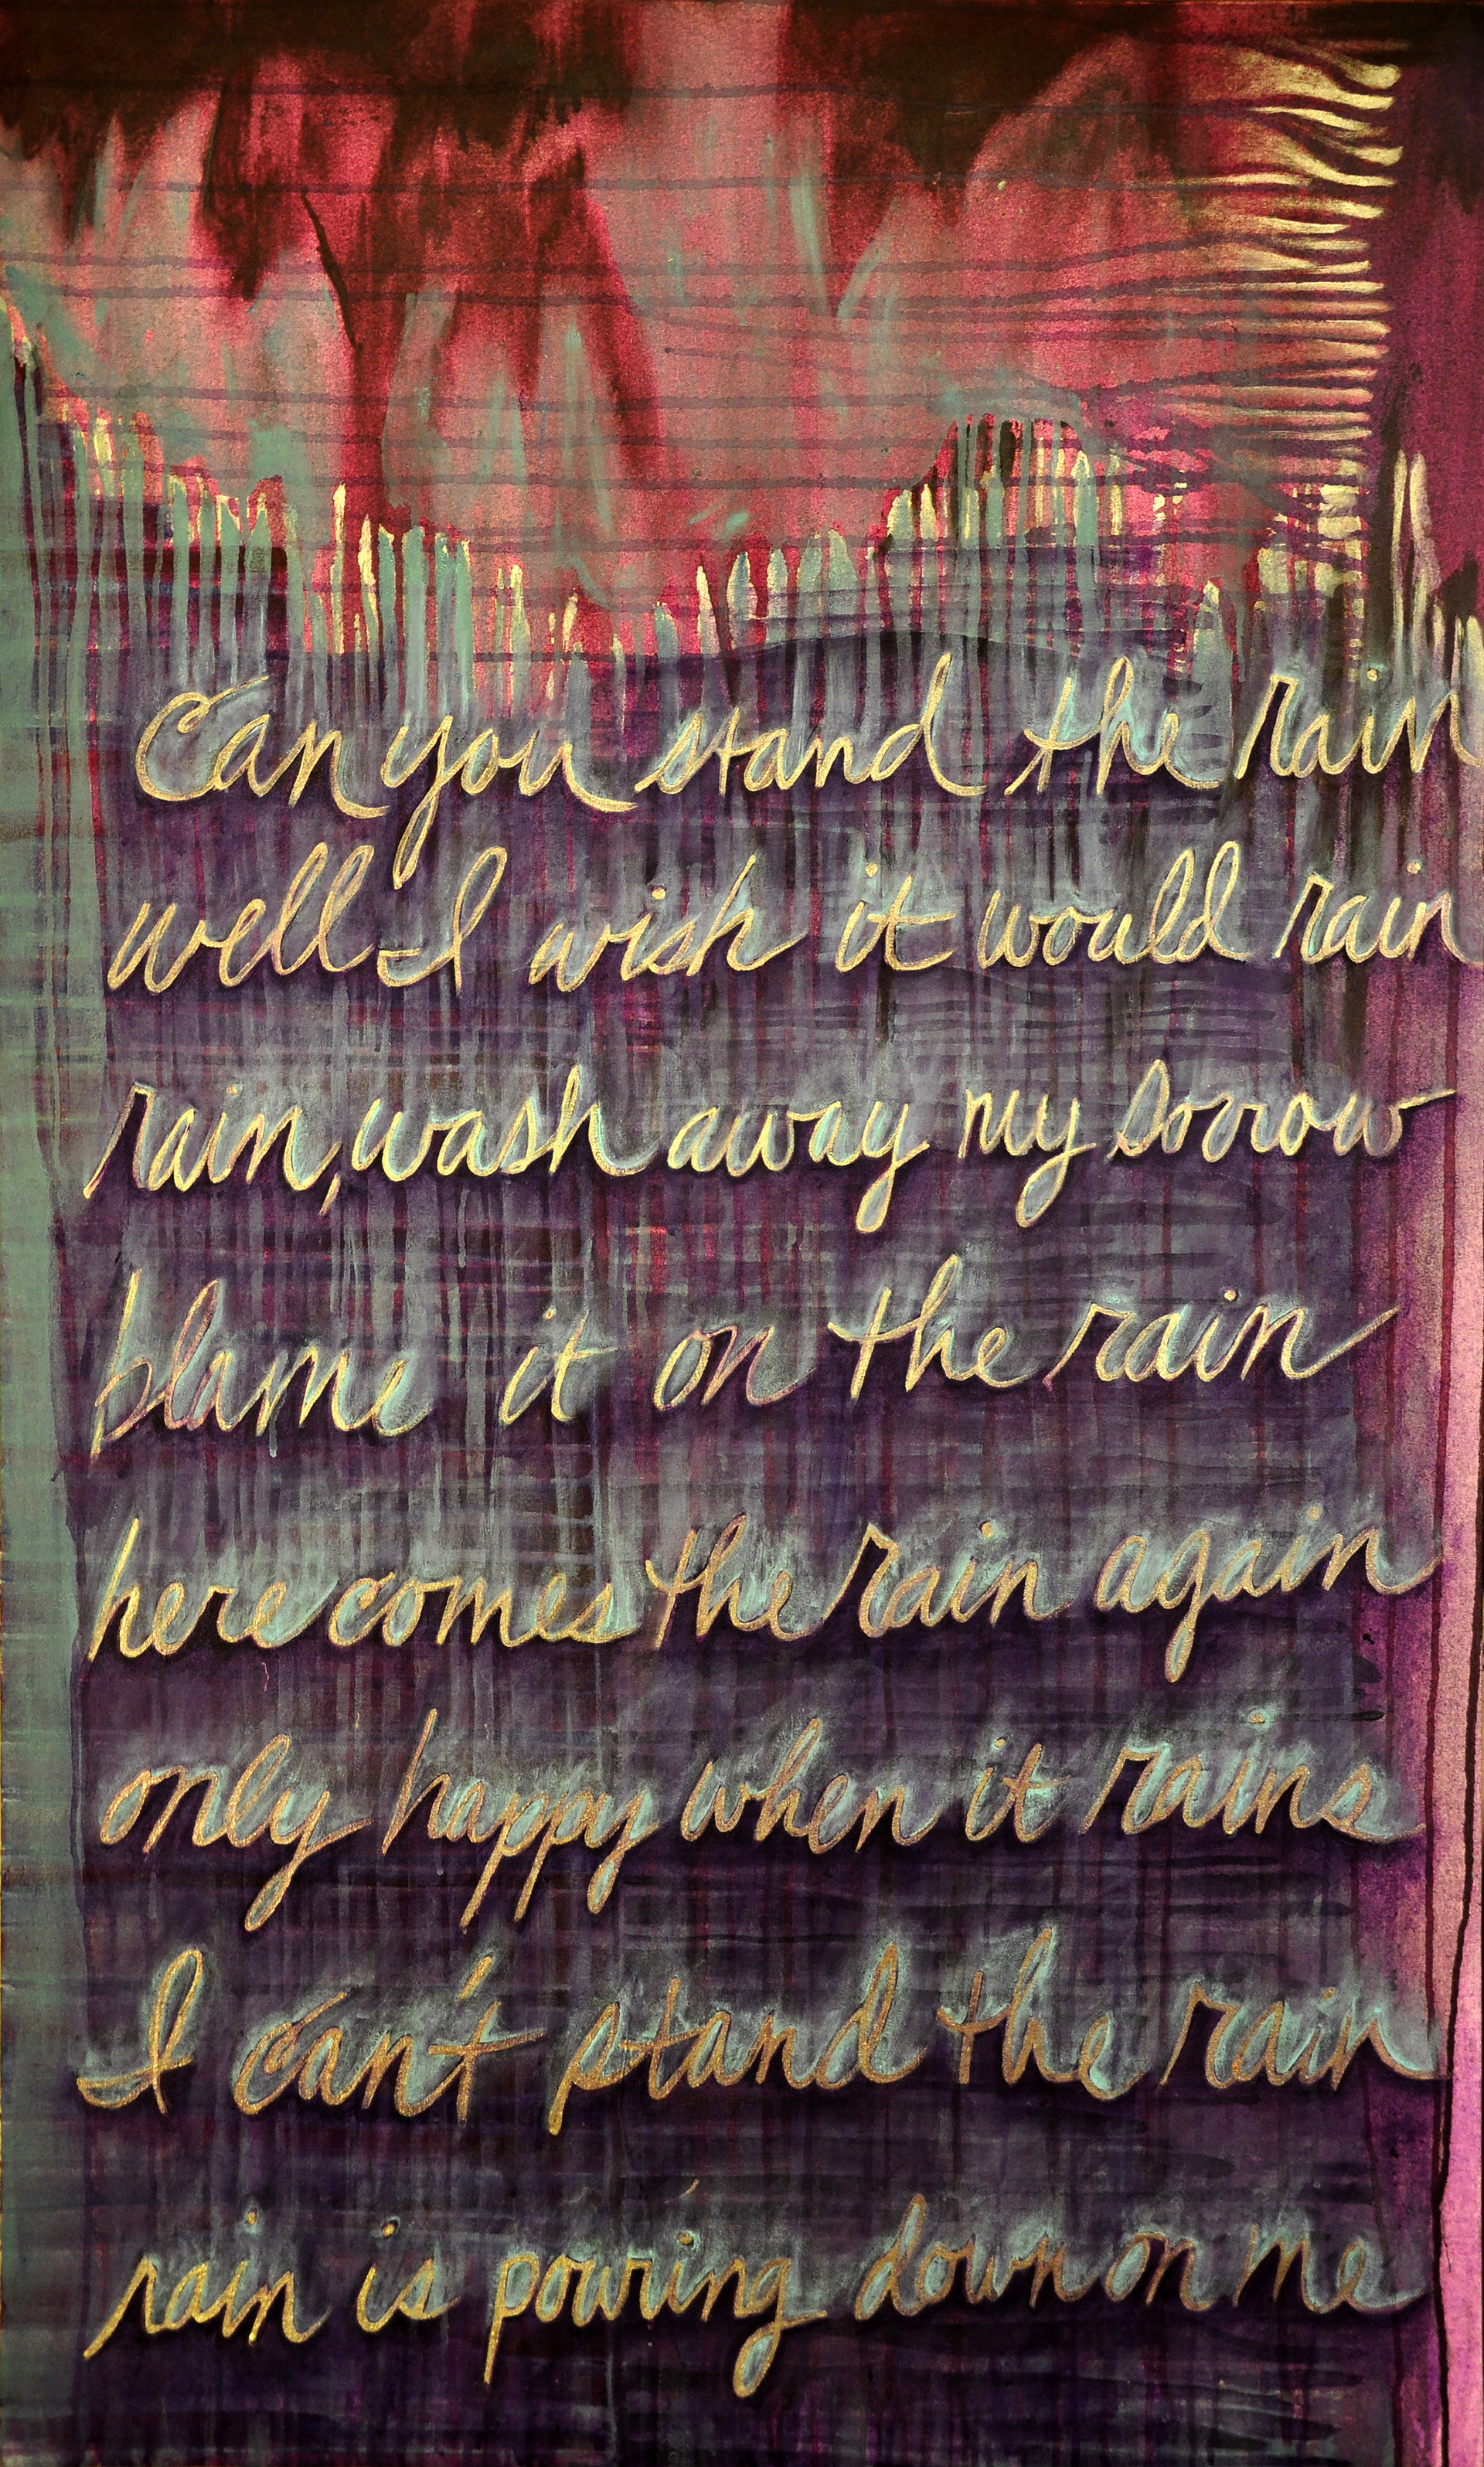 Can you stand the rain
well I wish it would rain
rain, wash away my sorrow
blame it on the rain
here comes the rain again
only happy when it rains
I can't stand the rain
rain is pouring down on me